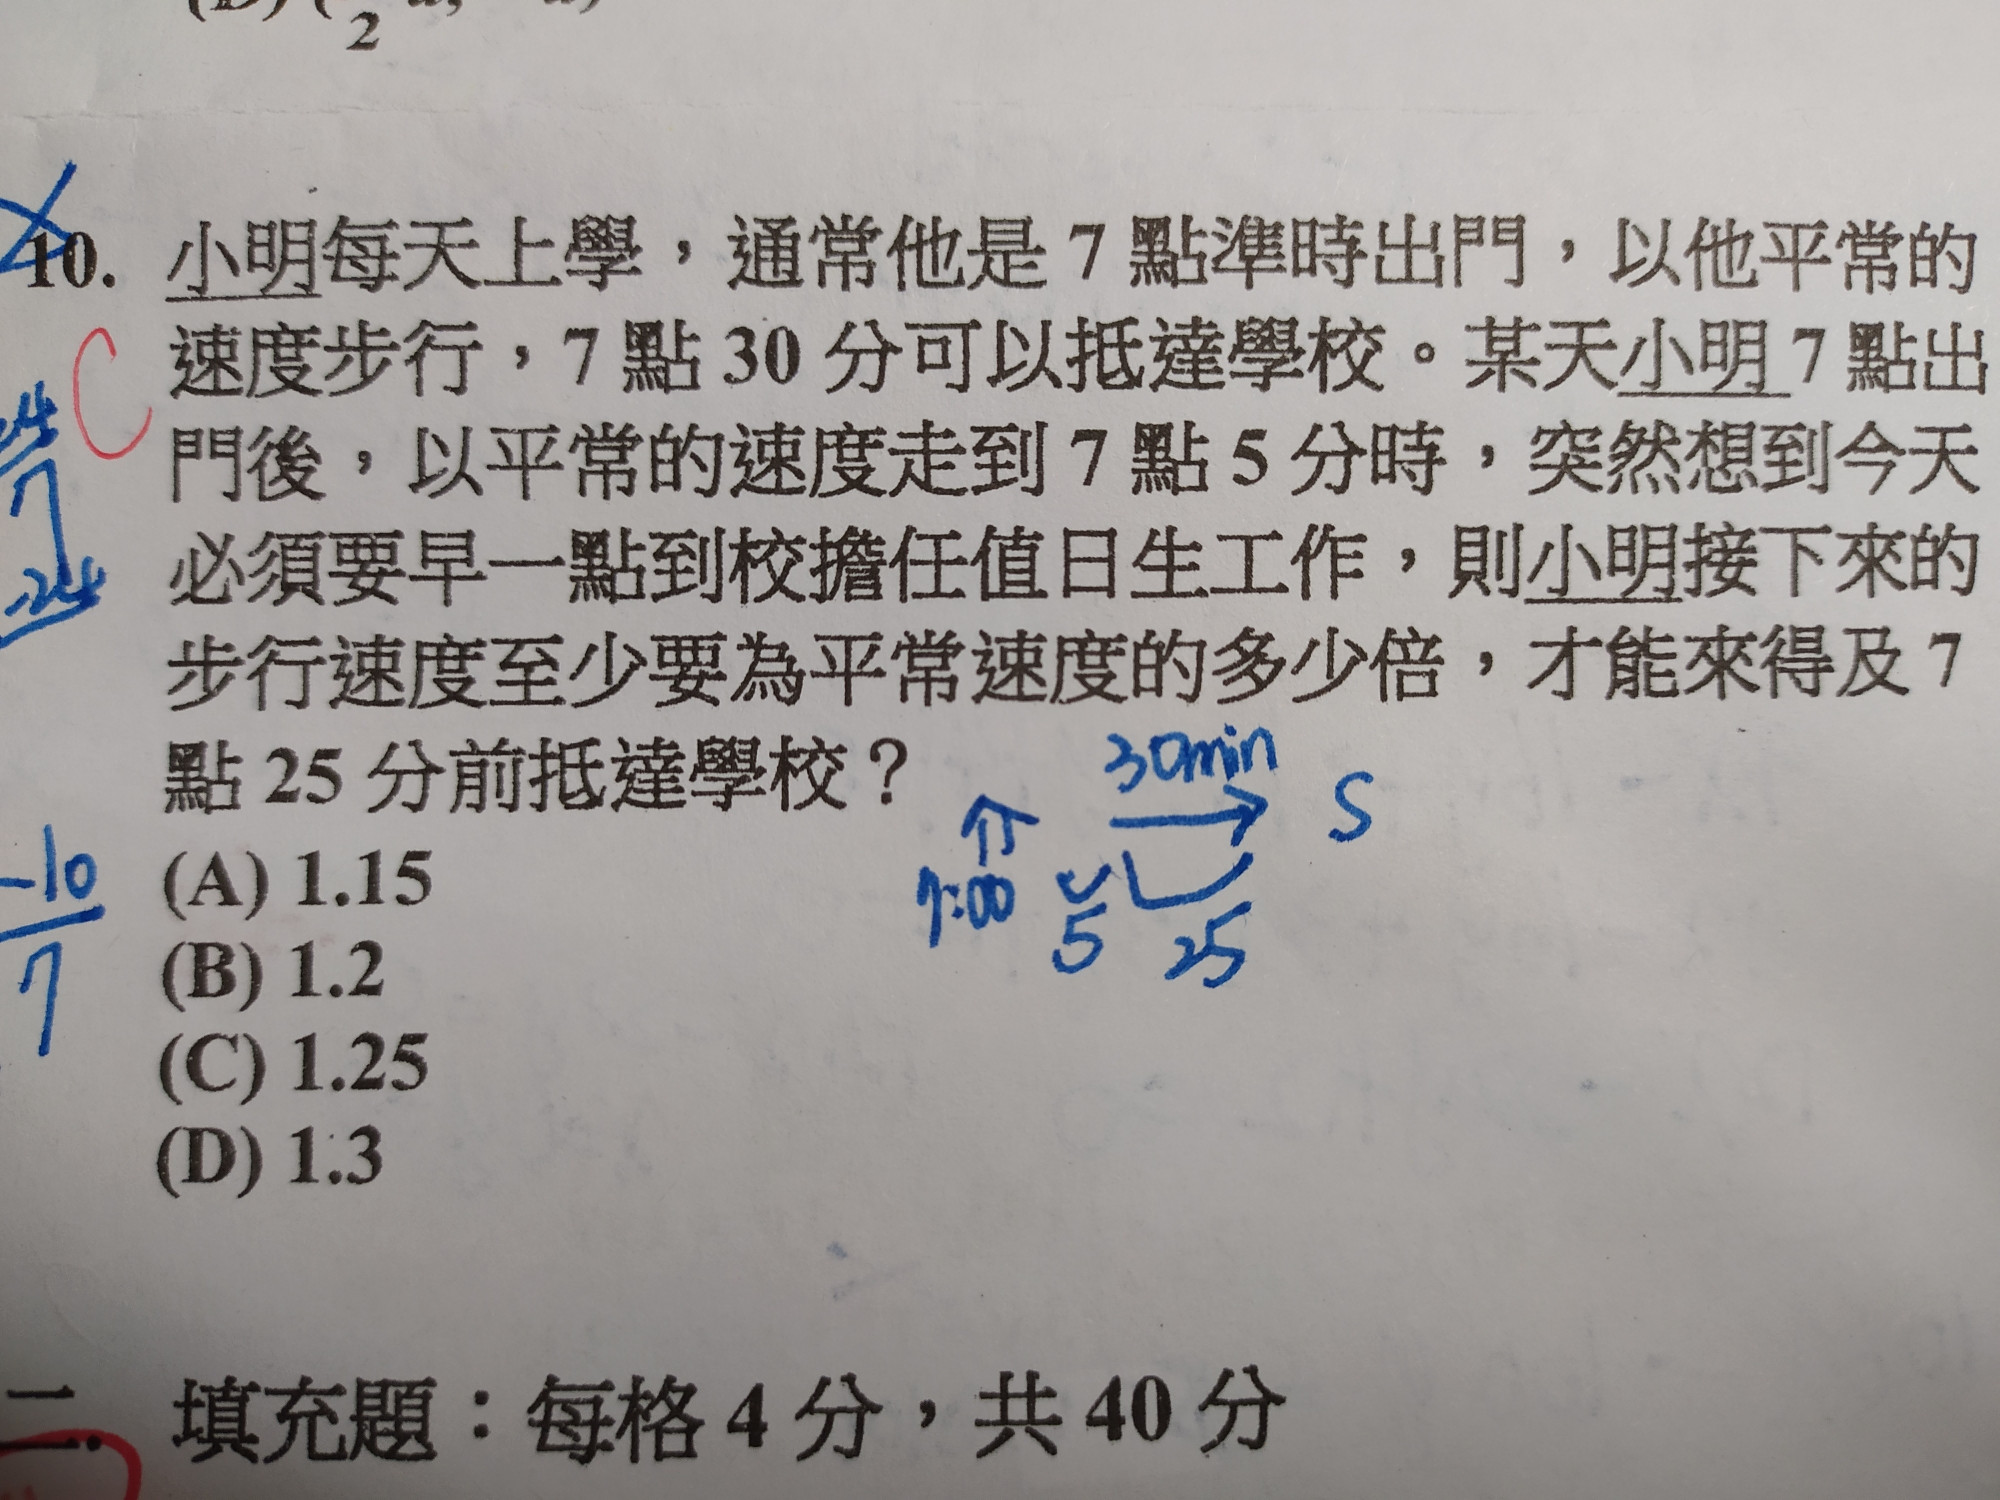 2
10. 小明每天上學，通常他是 7 點準時出門，以他平常的
C 速度步行，7 點 30 分可以抵達學校。某天小明 7 點出
門後，以平常的速度走到 7 點 5 分時，突然想到今天
必須要早一點到校擔任值日生工作，則小明接下來的
步行速度至少要為平常速度的多少倍，才能來得及 7
點 25 分前抵達學校？
30min
S
7:00
5
25
-10
7
(A) 1.15
(B) 1.2
(C) 1.25
(D) 1.3
二. 填充題：每格 4 分，共 40 分